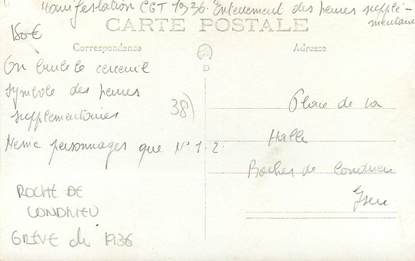 Manifestation CGT 1936. Enterrement des heures supplé-
mentaires
180€
CARTE POSTALE
Correspondance
Adresse
D
On brule le cercueil
symbole des heures
supplementaires
Meme personnages que N° 1-2
38)
Place de la
Halle
Roches de Condrieu
Isere
ROCHE DE
CONDRIEU
GRÈVE de 1936